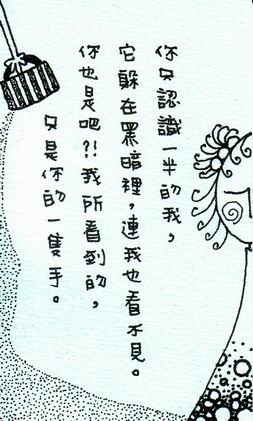 你只認識一半的我，
它躲在黑暗裡，連我也看不見。
你也是吧?!我所看到的，
只是你的一隻手。